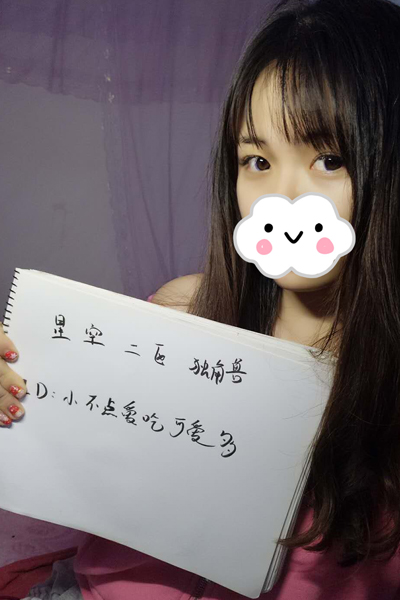 星空 二区 独角兽
ID:小不点爱吃可爱多